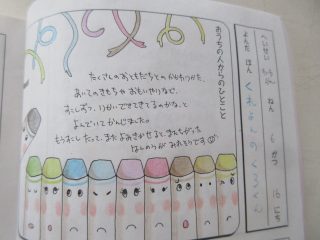 へいせい ねん 6 がつ 16 にち
よんだ ほん くれよんのくろくん
おうちの人からのひとこと
たくさんのおともだちとのかかわりかた、
あいてのきもちやおもいやりなど、
すこしずつ、りかいができてきてるのかな、と
よんでいてかんじました。
もうすこしたって、またよみきかせると、またちがった
はんのうが みれそうです